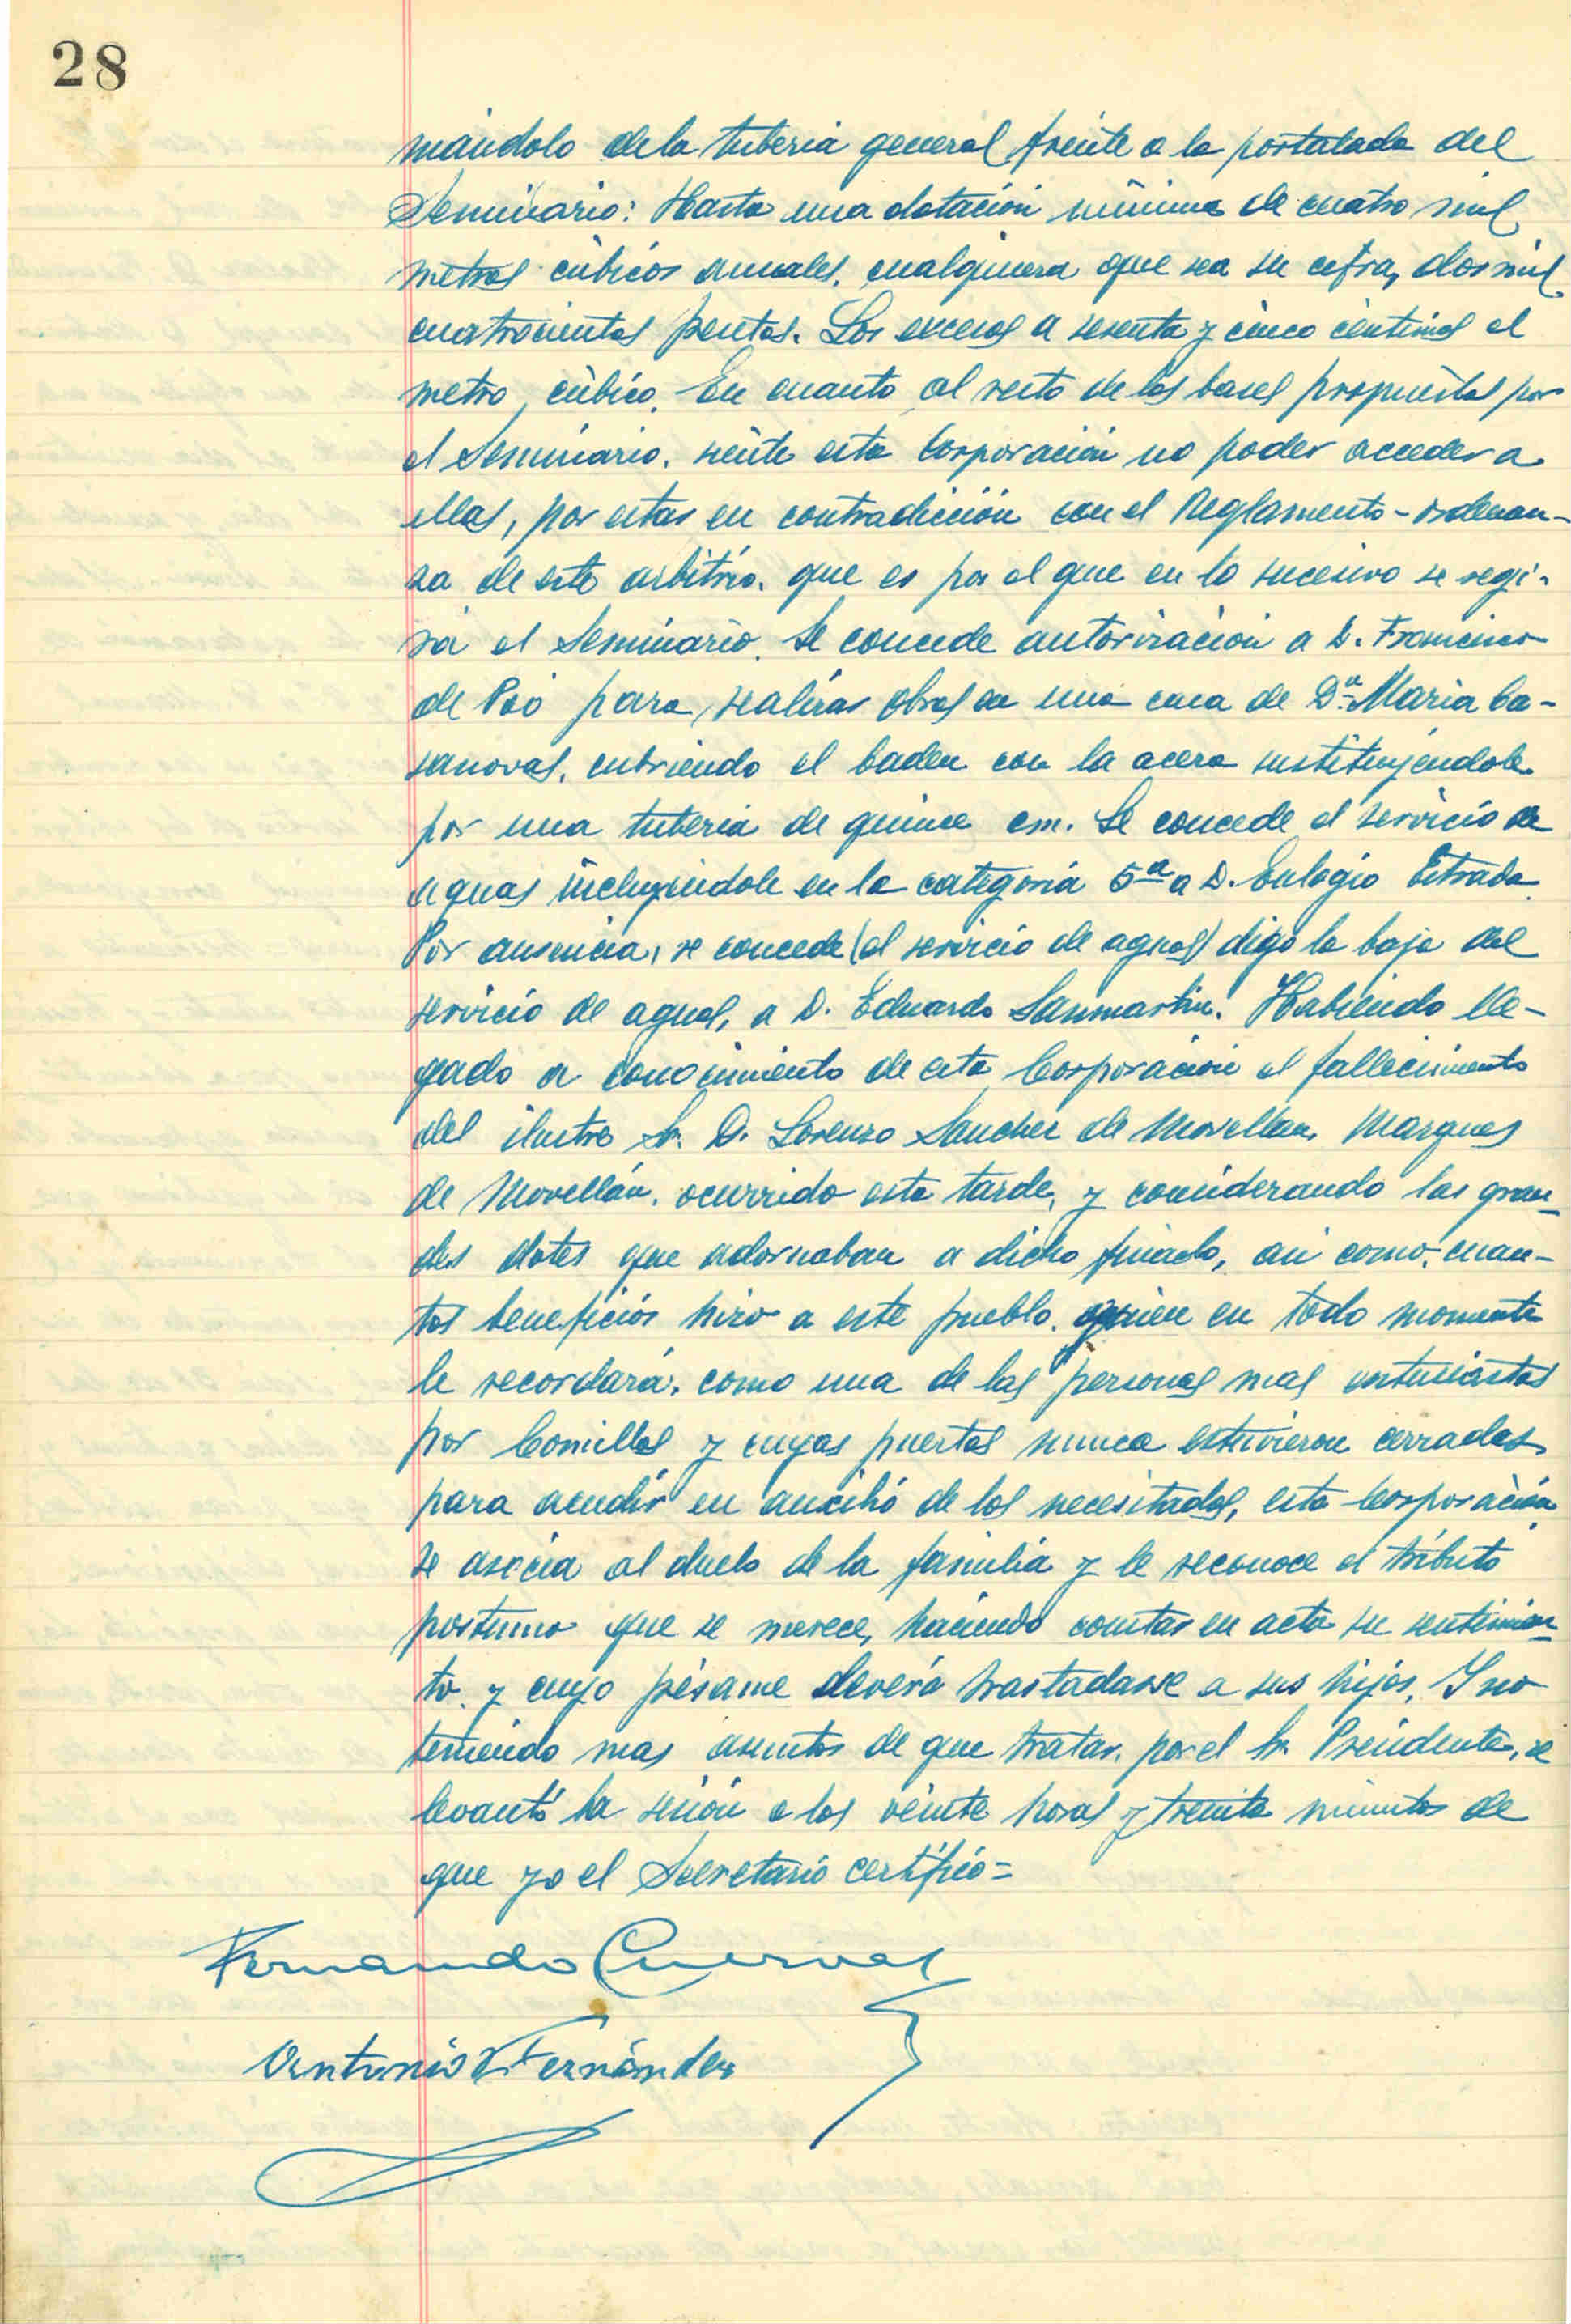 28
mándolo de la tuberia general frente a la portalada del
Seminario: Hasta una dotación mínima de cuatro mil
metros cúbicos anuales, cualquiera que sea su cifra, dos mil
cuatrocientas pesetas. Los excesos a sesenta y cinco céntimos el
metro cúbico. En cuanto al resto de las bases propuestas por
el Seminario, siente esta Corporación no poder acceder a
ellas, por estar en contradicción con el Reglamento-ordenan-
za de este arbitrio, que es por el que en lo sucesivo se regi-
rá el Seminario. Se concede autorización a D. Francisco
de Poó para realizar obras en una casa de Dª María Ca-
sanoval, cubriendo el baden con la acera sustituyéndole
por una tuberia de quince cm. Se concede el servicio de
aguas incluyéndole en la categoría 5ª a D. Eulogio Estrada.
Por ausencia, se concede (el servicio de aguas) digo la baja del
servicio de aguas, a D. Eduardo Sanmartin. Habiendo lle-
gado a conocimiento de esta Corporación el fallecimiento
del ilustre Sr. D. Lorenzo Sanchez de Movellan, Marques
de Movellán, ocurrido esta tarde, y considerando las gran-
des dotes que adornaban a dicho finado, asi como, cuan-
tos beneficios hizo a este pueblo, quien en todo momento
le recordará, como una de las personas mas entusiastas
por Comillas y cuyas puertas nunca estuvieron cerradas
para acudir en auxilio de los necesitados, esta Corporación
se asocia al duelo de la familia y le reconoce el tributo
postumo que se merece, haciendo constar en acta su sentimien-
to, y cuyo pésame deverá trastadarse a sus hijos. Y no
teniendo mas asuntos de que tratar, por el Sr. Presidente, se
levantó la sesión a las veinte horas y treinta minutos de
que yo el Secretario certifico=
Fernando Cuevas
Antonio Fernández